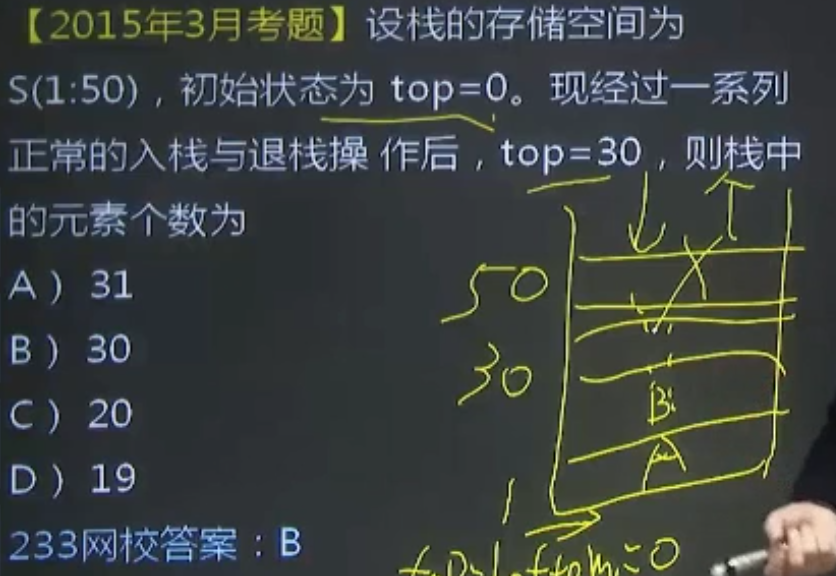 【2015年3月考题】设栈的存储空间为
S(1:50)，初始状态为 top=0。现经过一系列
正常的入栈与退栈操 作后，top=30，则栈中
的元素个数为
A）31
B）30
C）20
D）19
233网校答案：B
50
30
B
A
1
=0